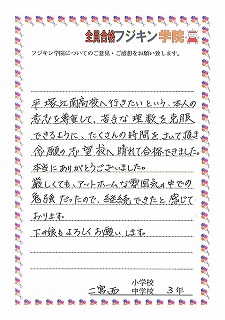 全員合格フジキン学院
フジキン学院についてのご意見・ご感想をお願い致します。
平塚江南高校へ行きたいという、本人の
意志を尊重して、苦手な理数を克服
できるように、たくさんの時間をさいて頂き
念願の志望校へ晴れて合格できました。
本当にありがとうございました。
厳しくても、アットホームな雰囲気の中での
勉強だったので、継続できたと感じて
おります。
下の娘もよろしくお願いします。
小学校
二宮西 中学校 3年